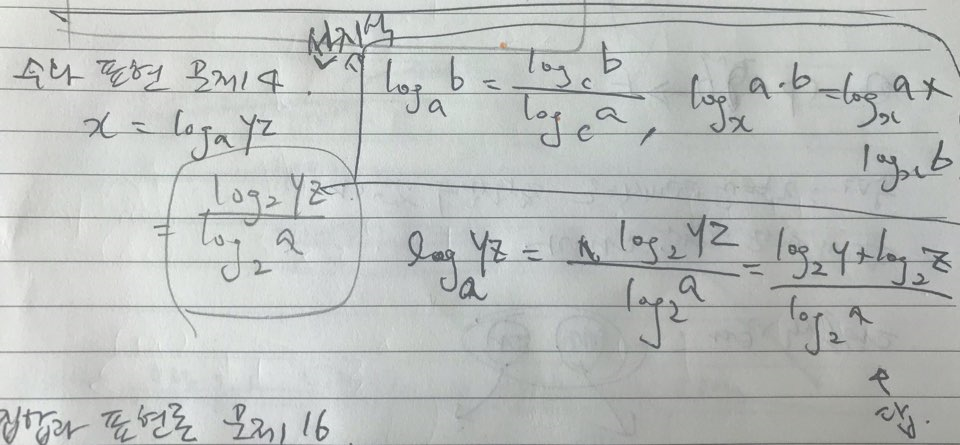 수다 표현 문제14
x = log_a yz
= log_2 yz / log_2 a
log_a b = log_c b / log_c a , log_x a·b = log_x a x
log_x b
log_a yz = log_2 yz / log_2 a = log_2 y + log_2 z / log_2 a
표현론 문제 16